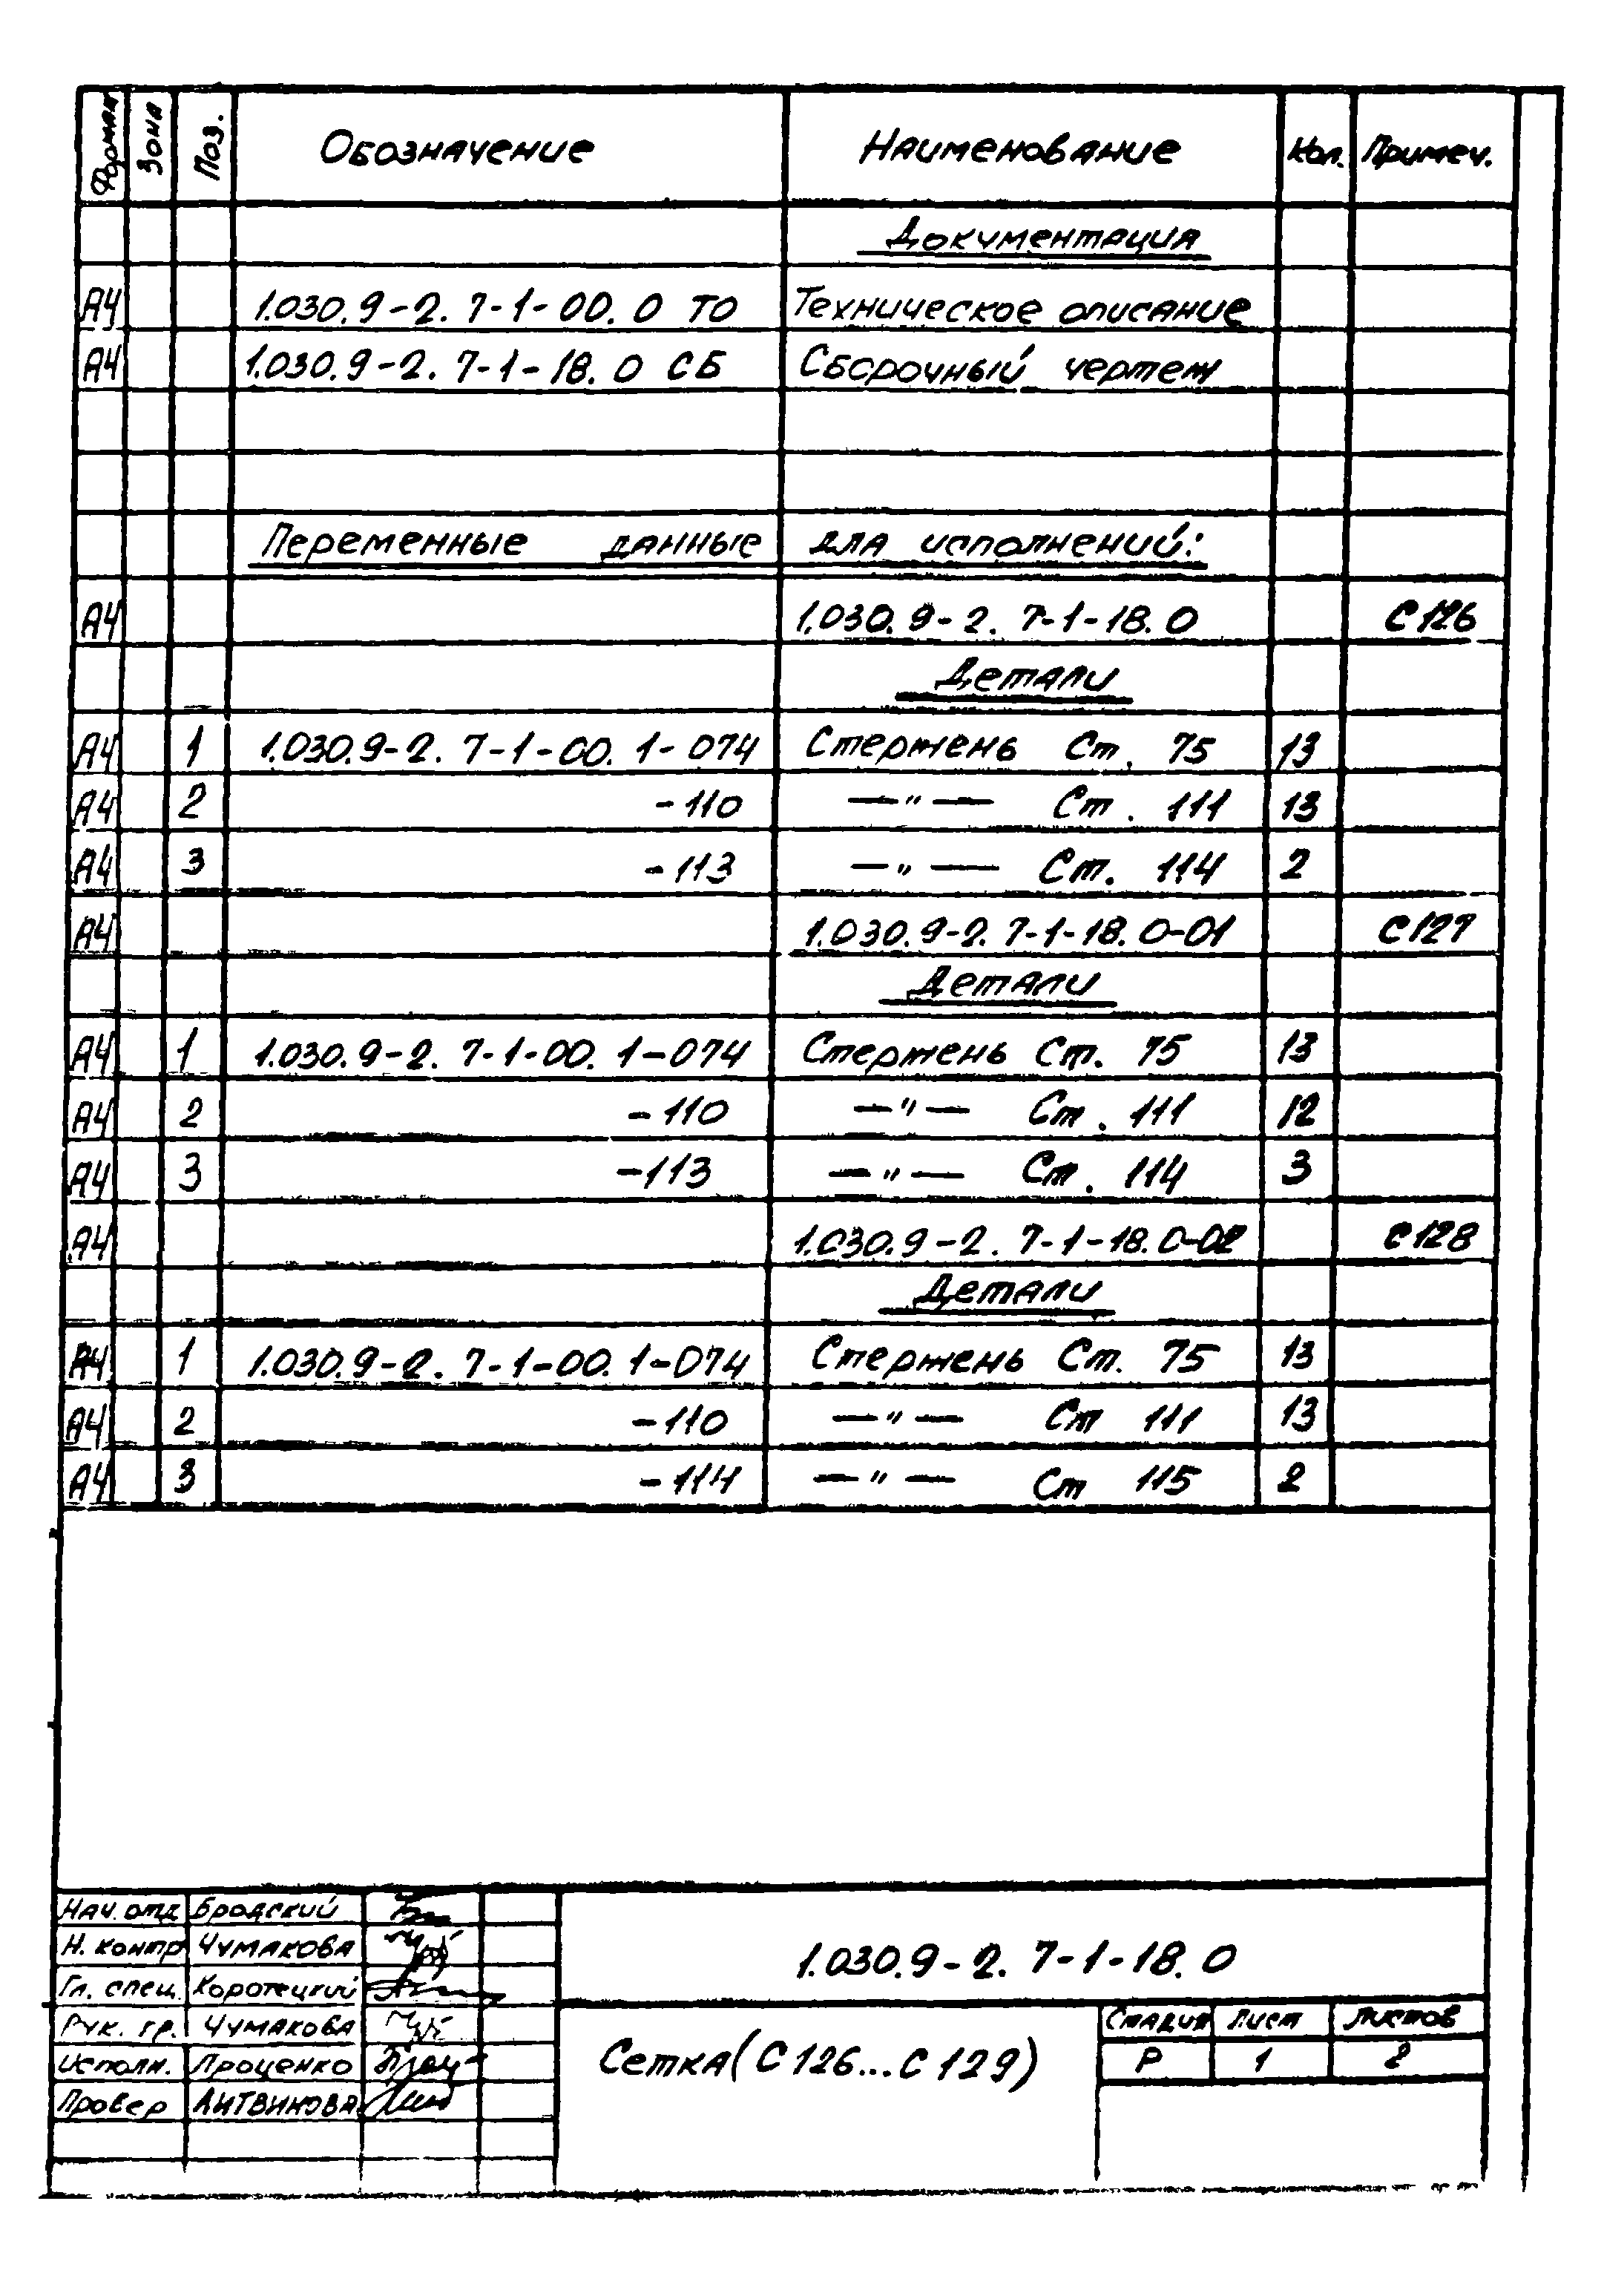 Формат Зона Поз. Обозначение Наименование Кол. Примеч.
Документация
А4 1.030.9-2. 7-1-00.0 ТО Техническое описание
А4 1.030.9-2. 7-1-18.0 СБ Сборочный чертеж
Переменные данные для исполнений:
А4 1.030.9-2. 7-1-18.0 С126
Детали
А4 1 1.030.9-2. 7-1-00.1-074 Стержень Ст. 75 13
А4 2 -110 —"— Ст. 111 13
А4 3 -113 —"— Ст. 114 2
А4 1.030.9-2. 7-1-18.0-01 С127
Детали
А4 1 1.030.9-2. 7-1-00.1-074 Стержень Ст. 75 13
А4 2 -110 —"— Ст. 111 12
А4 3 -113 —"— Ст. 114 3
А4 1.030.9-2. 7-1-18.0-02 С128
Детали
А4 1 1.030.9-2. 7-1-00.1-074 Стержень Ст. 75 13
А4 2 -110 —"— Ст 111 13
А4 3 -114 —"— Ст 115 2
Нач. отд Бродский
Н. контр Чумакова
Гл. спец. Коротецкий
Рук. гр. Чумакова
Исполн. Проценко
Провер Литвинова
1.030.9-2. 7-1-18.0
Сетка (С126...С129)
Стадия Лист Листов
Р 1 2